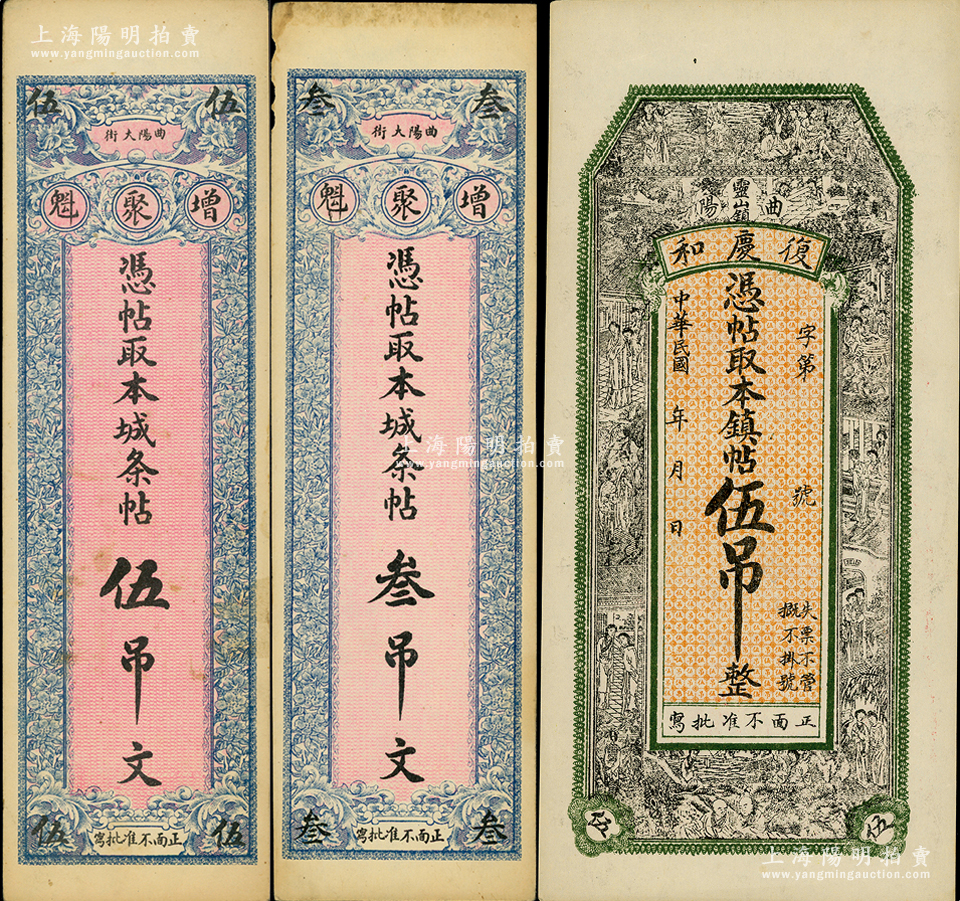 上海陽明拍賣
www.yangmingauction.com
伍
伍
曲陽大街
增聚魁
憑帖取本城条帖
伍吊文
伍
伍
正面不准批寫
叁
叁
曲陽大街
增聚魁
憑帖取本城条帖
叁吊文
叁
叁
正面不准批寫
上海陽明拍賣
www.yangmingauction.com
上海陽明拍賣
www.yangmingauction.com
曲陽
靈山鎮
復慶和
字第 號
憑帖取本鎮帖伍吊整
中華民國 年 月 日
失票不管
概不掛號
正面不准批寫
伍
伍
上海陽明拍賣
www.yangmingauction.com